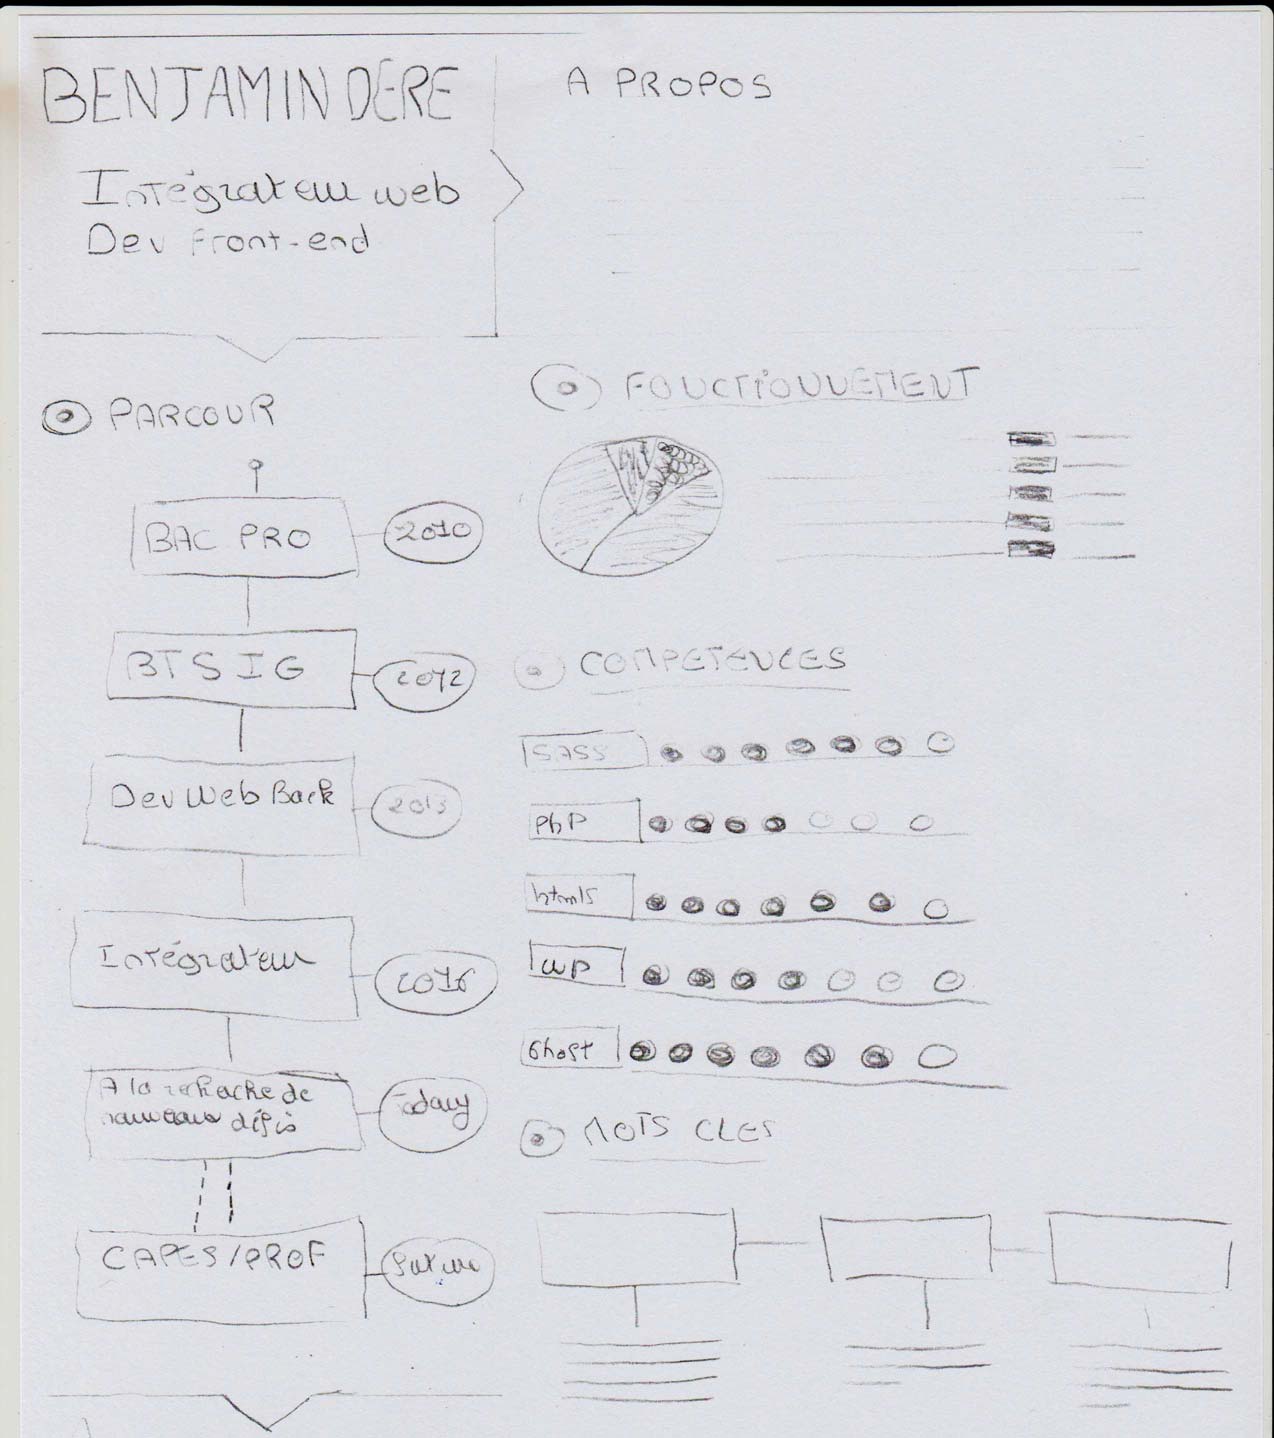 BENJAMIN DERE
Intégrateur web
Dev front-end
A PROPOS
PARCOUR
BAC PRO
2010
BTS IG
2012
Dev Web Back
2013
Intégrateur
2016
A la recherche de
nouveaux défis
Today
CAPES/PROF
Future
FONCTIONNEMENT
COMPETENCES
SASS
PhP
html5
WP
Ghost
MOTS CLES